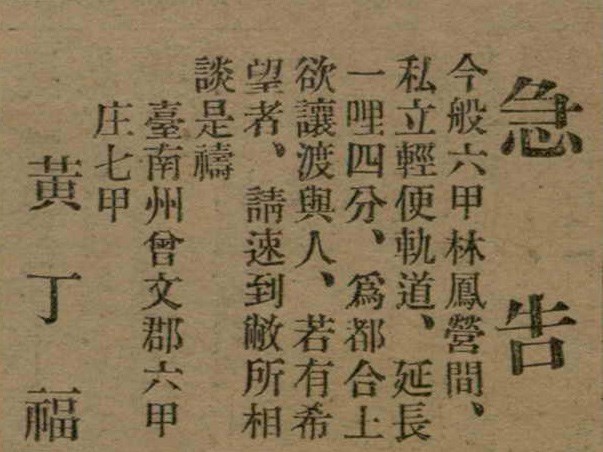 急告
今般六甲林鳳營間、
私立輕便軌道、延長
一哩四分、爲都合上
欲讓渡與人、若有希
望者、請速到敝所相
談是禱
臺南州曾文郡六甲
庄七甲
黃丁福